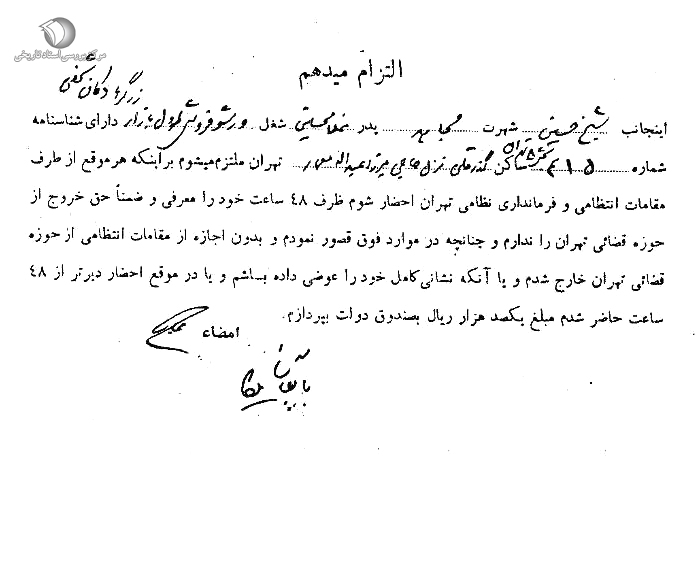 مرکز بررسی اسناد تاریخی
التزام میدهم
زرگرها دکان کفش
اینجانب شیخ حسین شهرت پدر غلامحسین شغل ورشو فروش اول بازار دارای شناسنامه
شماره ۶۱۵ ساکن گذرقلی منزل حاجی میرزا عبداله معمار تهران ملتزم میشوم برآینکه هر موقع از طرف
مقامات انتظامی و فرمانداری نظامی تهران احضار شوم ظرف ۴۸ ساعت خود را معرفی و ضمناً حق خروج از
حوزه قضائی تهران را ندارم و چنانچه در موارد فوق قصور نمودم و بدون اجازه از مقامات انتظامی از حوزه
قضائی تهران خارج شدم و یا آنکه نشانی کامل خود را عوضی داده بساشم و یا در موقع احضار دیرتر از ۴۸
ساعت حاضر شدم مبلغ یکصد هزار ریال بصندوق دولت بپردازم.
امضاء